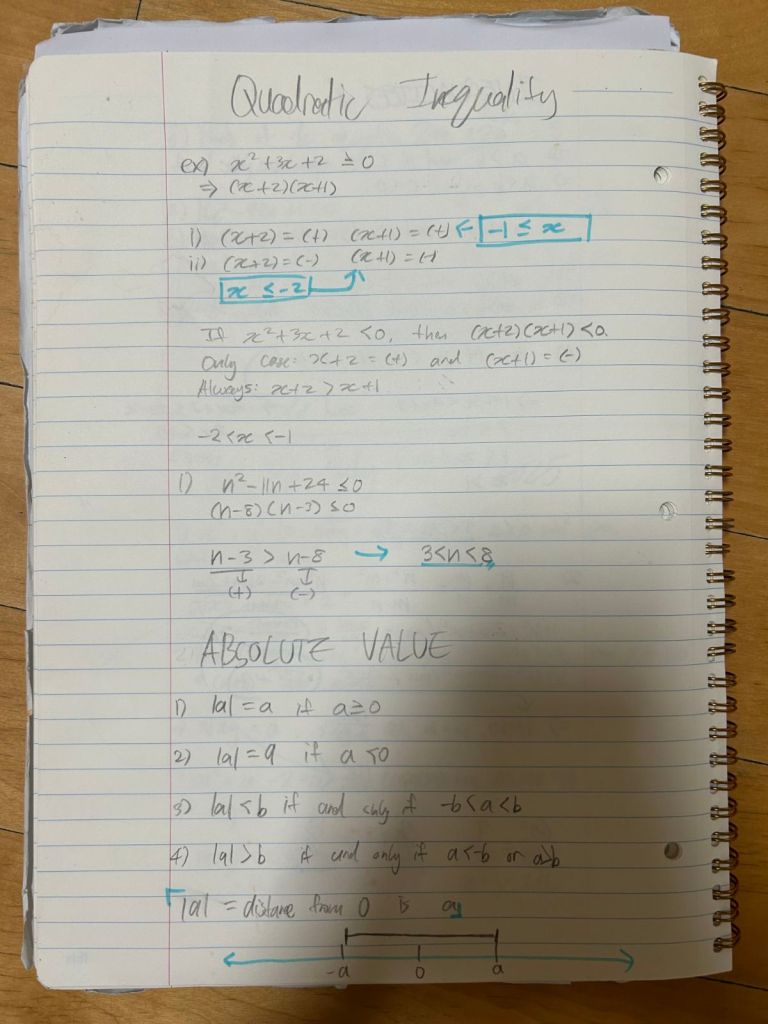 Quadratic Inequality
ex) x² + 3x + 2 ≥ 0
⇒ (x+2)(x+1)
i) (x+2) = (+) (x+1) = (+) ← -1 ≤ x
ii) (x+2) = (-) (x+1) = (-)
x ≤ -2
If x² + 3x + 2 < 0, then (x+2)(x+1) < 0.
Only case: x+2 = (+) and (x+1) = (-)
Always: x+2 > x+1
-2 < x < -1
1) n² - 11n + 24 ≤ 0
(n-8)(n-3) ≤ 0
n-3 > n-8 → 3<n<8
(+) (-)
ABSOLUTE VALUE
1) |a| = a if a ≥ 0
2) |a| = a if a < 0
3) |a| < b if and only if -b < a < b
4) |a| > b if and only if a < -b or a > b
|a| = distane from 0 is a
-a 0 a